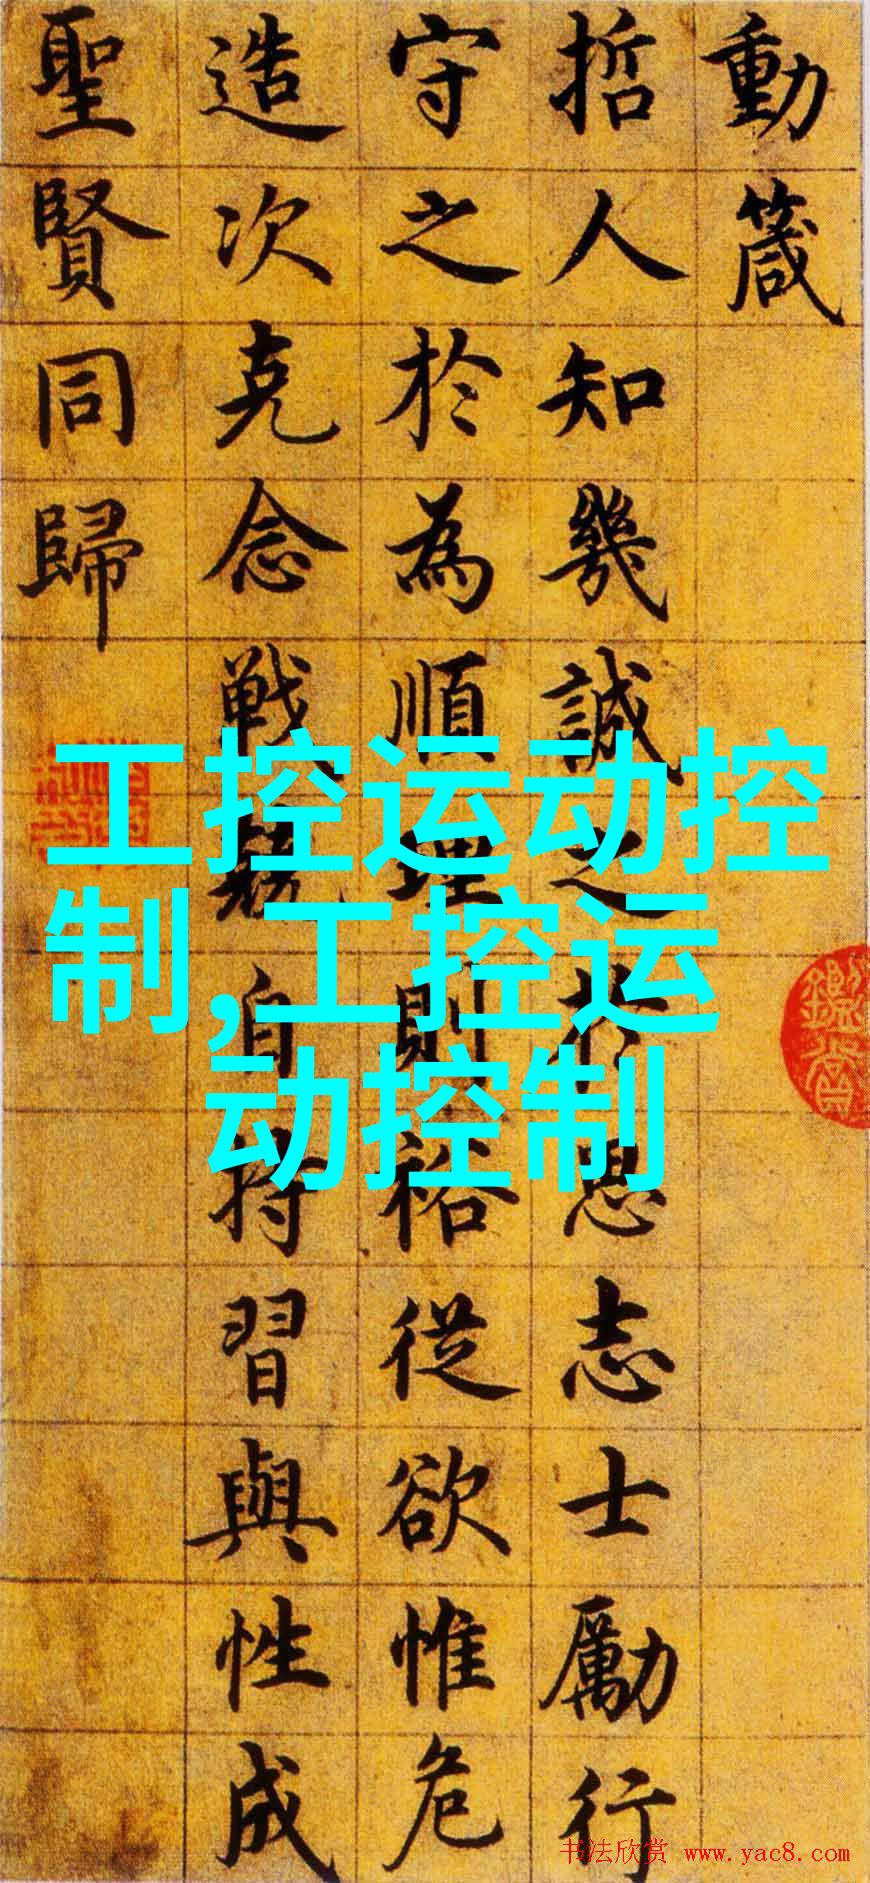 動箴
哲人知幾誠之於思志士勵行
守之於為順理則裕從欲惟危
造次克念戰兢自持習與性成
聖賢同歸
工控运动控
制,工控运
动控制
书法欣赏 www.yac8.com